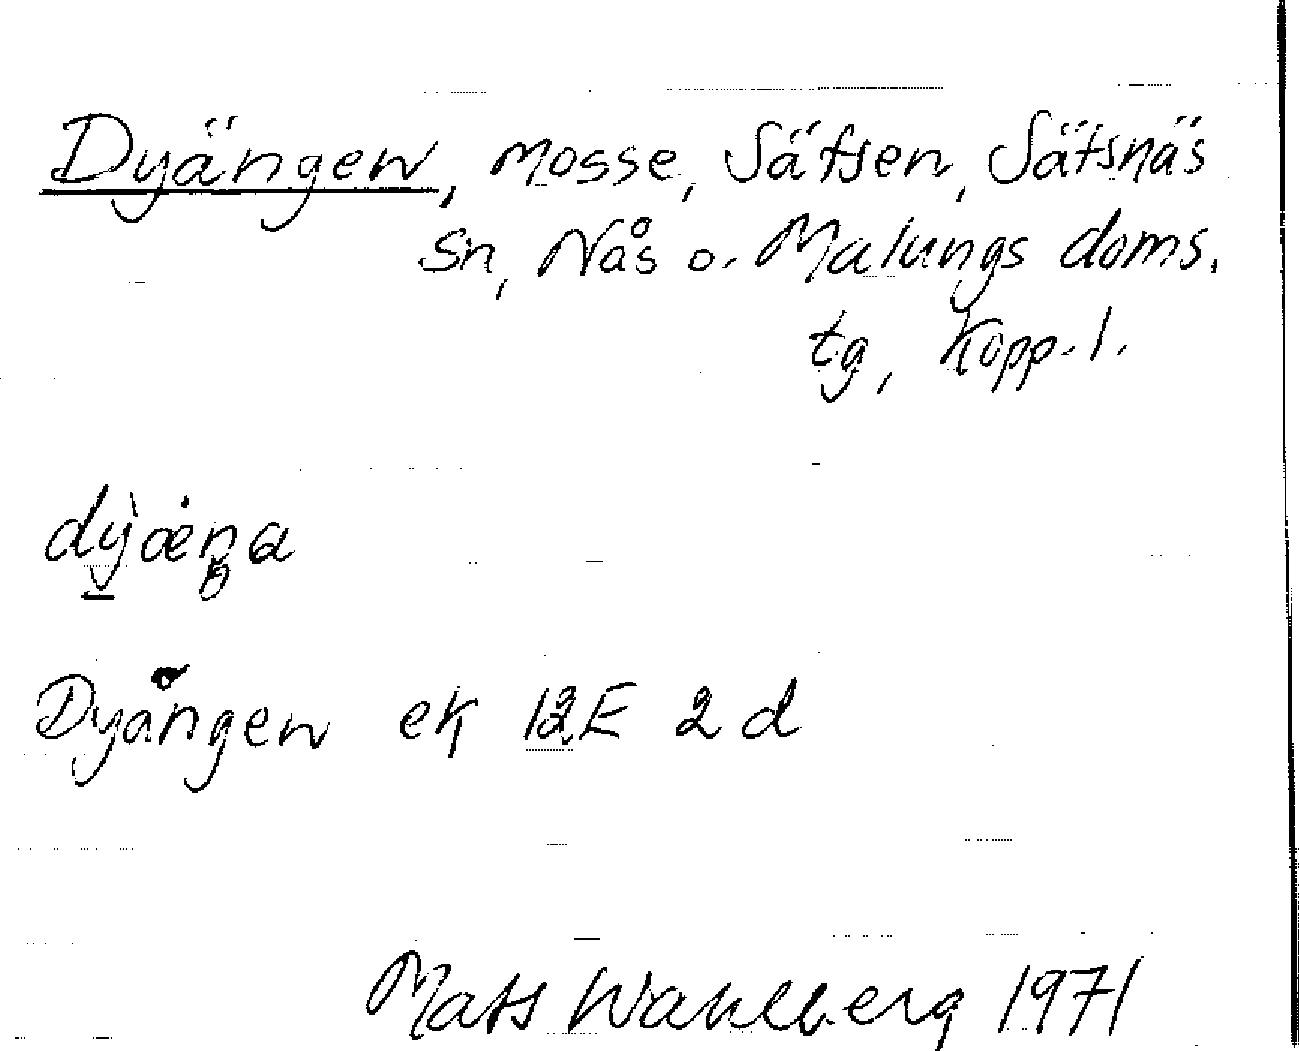 Dyängen, mosse, Sätsen, Sätsnäs
sn, Nås o. Malungs doms.
tg, Kopp. l.
Dyängen ek 12E 2d
Mats Wahlberg 1971